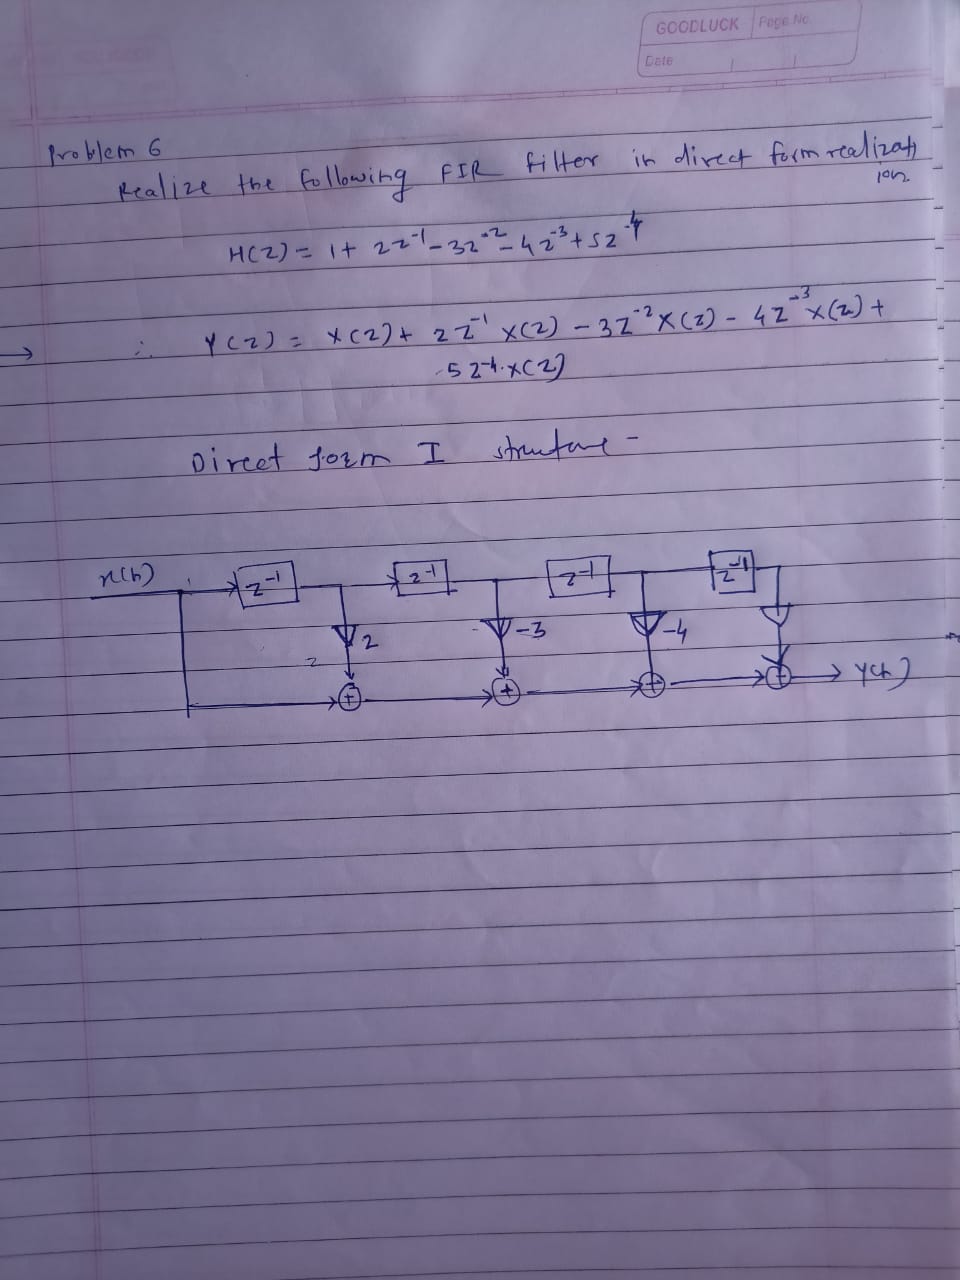 GOODLUCK Page No.
Date
Problem 6
Realize the following FIR filter in direct form realizati
ion.
H(Z) = 1 + 2z⁻¹ - 3z⁻² - 4z⁻³ + 5z⁻⁴
→ ∴ Y(z) = X(z) + 2z⁻¹ X(z) - 3z⁻² X(z) - 4z⁻³ X(z) +
5z⁻⁴.X(z)
Direct form I structure -
x(n) z⁻¹ z⁻¹ z⁻¹ z⁻¹
2 -3 -4
2
+ + + + y(n)